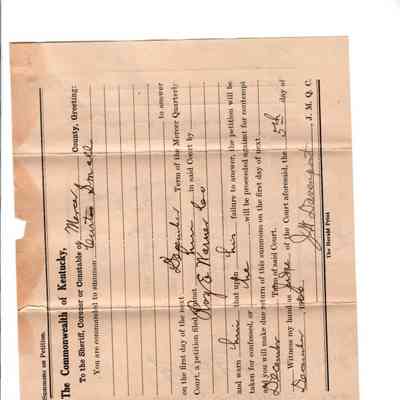 Summons on Petition.
The Commonwealth of Kentucky,
To the Sheriff, Coroner or Constable of Mercer County, Greeting:
You are commanded to summon Curtis Small
to answer
on the first day of the next December Term of the Mercer Quarterly
Court, a petition filed against him in said Court by
Roy E Warner Co
and warn him that upon his failure to answer, the petition will be
taken for confessed, or he will be proceeded against for contempt
and you will make due return of this summons on the first day of next
December Term of said Court.
Witness my hand as Judge of the Court aforesaid, the 5th day of
December
J. M. Q. C.
The Herald Print